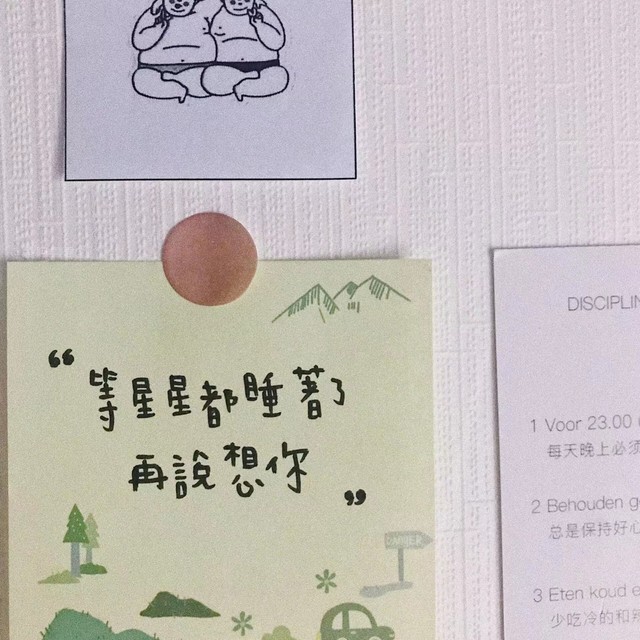 “等星星都睡著了
再說想你”
SUMMER
DISCIPLIN
1 Voor 23.00
每天晚上必须
2 Behouden g
总是保持好心
3 Eten koud e
少吃冷的和